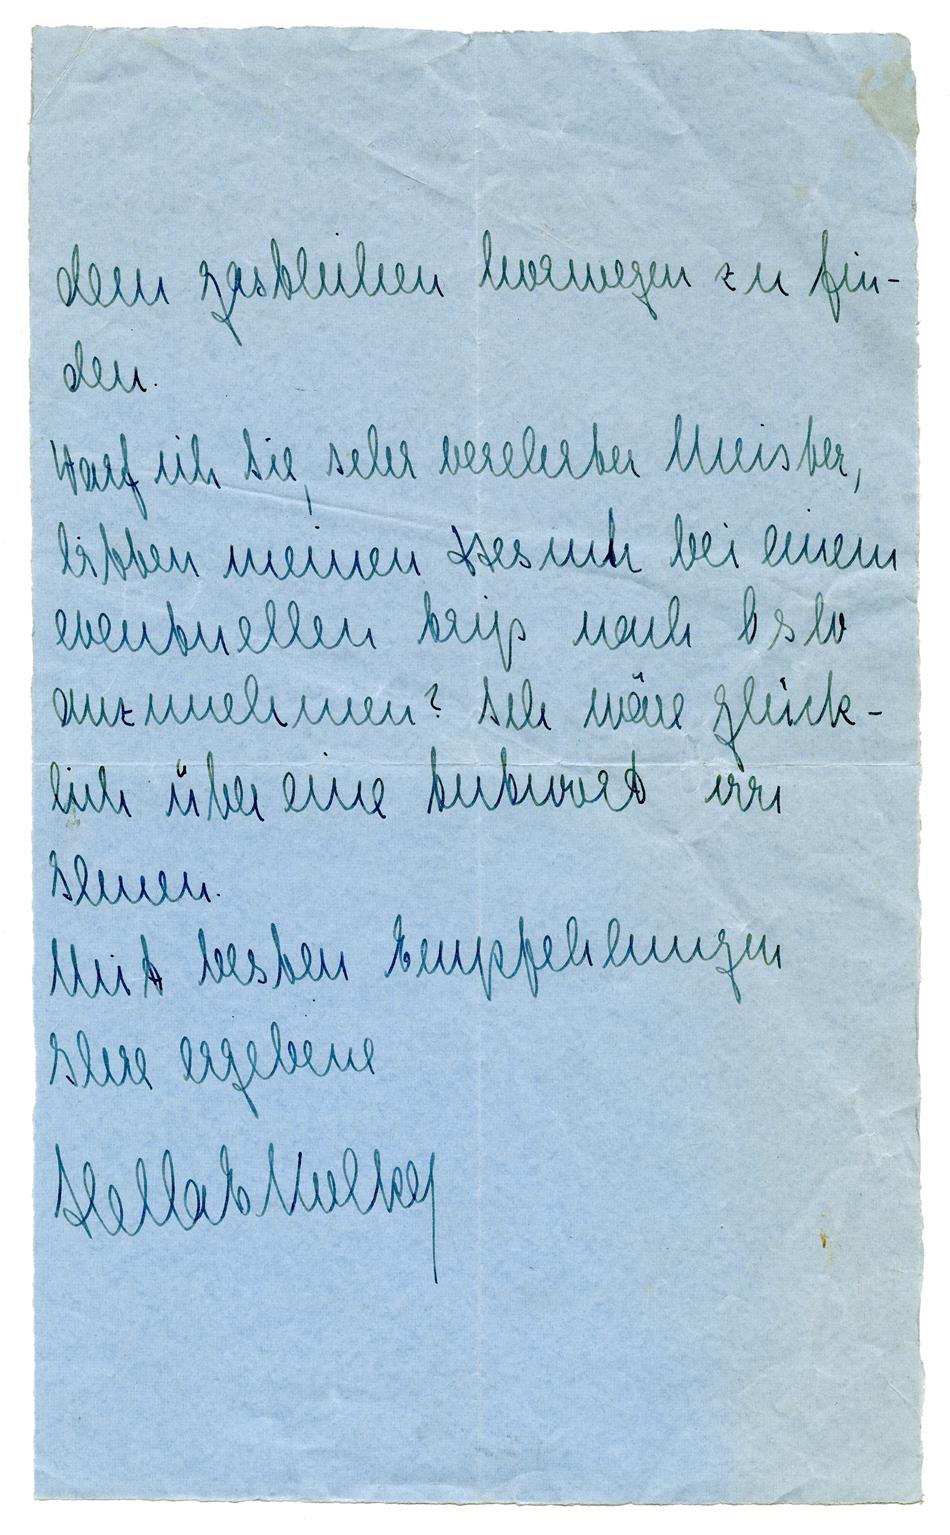 dem gastlichen Norwegen zu fin-
den.
Darf ich Sie, sehr verehrter Meister,
bitten meinen Besuch bei einem
eventuellen Trip nach Oslo
anzunehmen? Ich wäre glück-
lich über eine Antwort von
Ihnen.
Mit besten Empfehlungen
Ihre ergebene
Hella E